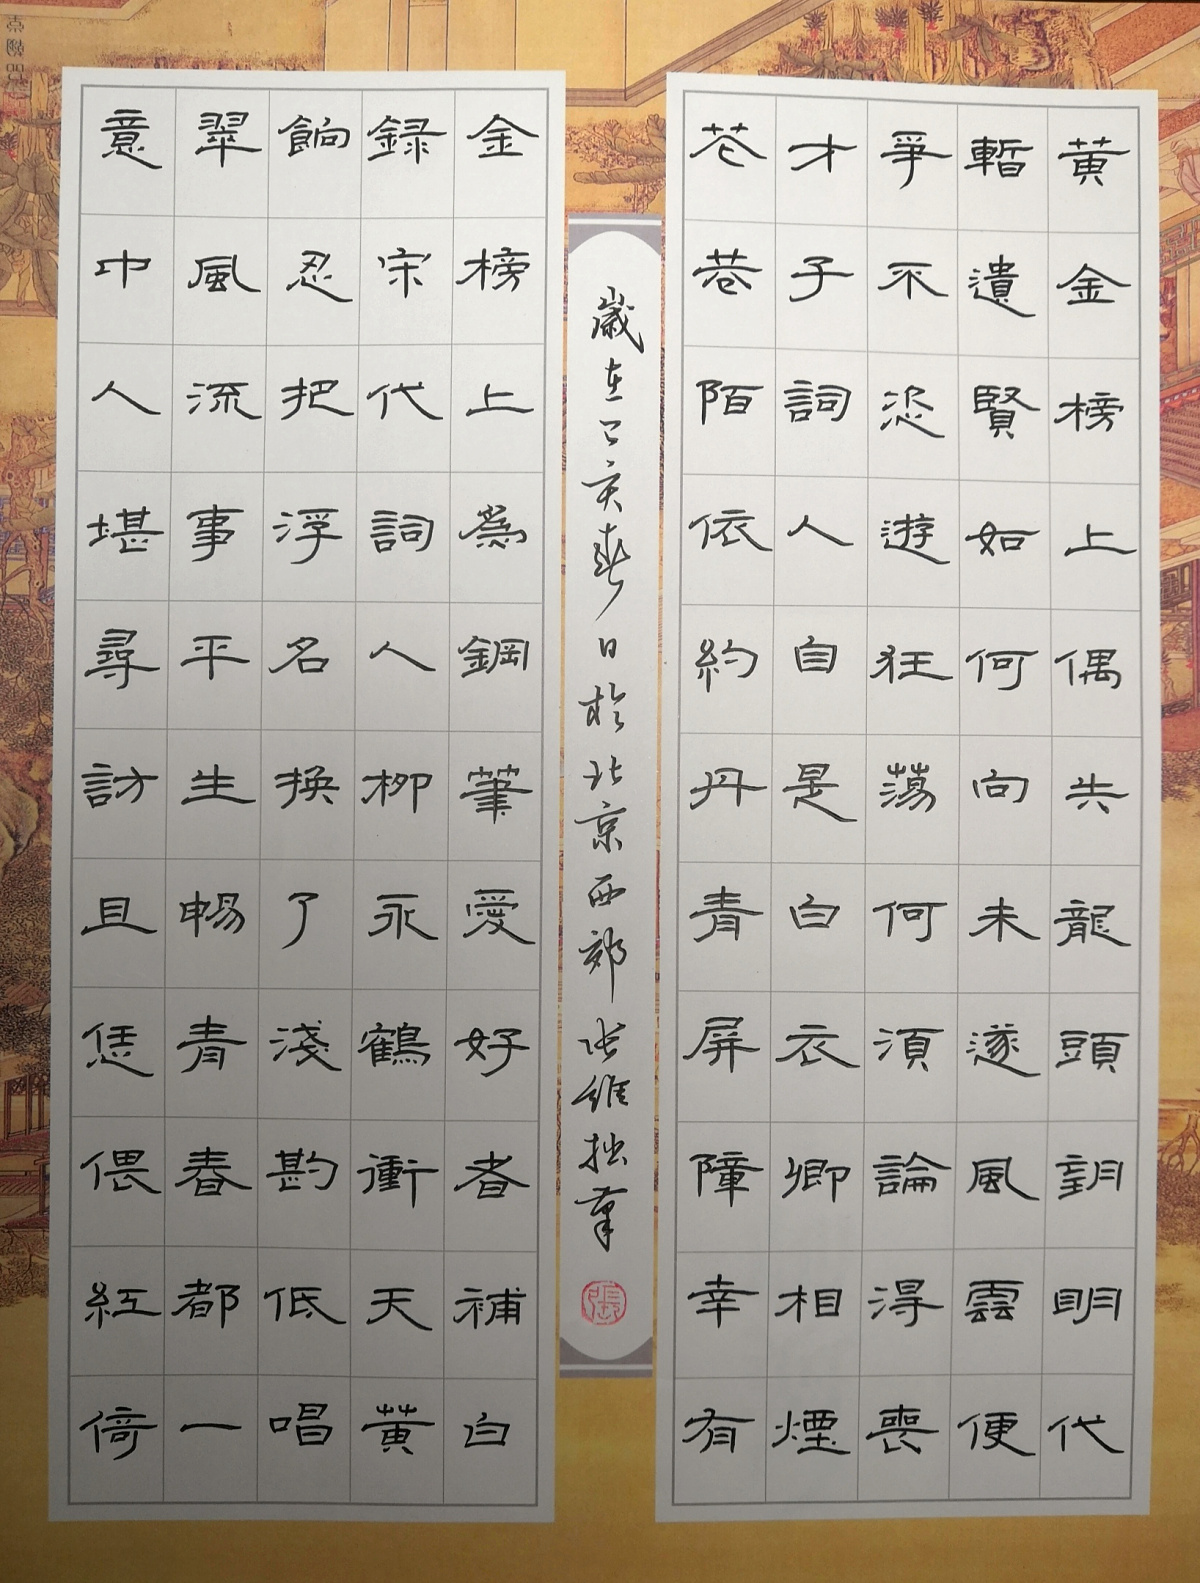 黄金榜上偶失龍頭望明代
暫遺賢如何向未遂風雲便
爭不恣遊狂蕩何須論得喪
才子詞人自是白衣卿相煙
花巷陌依約丹青屏障幸有
意中人堪尋訪且恁偎紅倚
翠風流事平生暢青春都一
餉忍把浮名換了淺斟低唱
録宋代詞人柳永鶴衝天黄
金榜上爲鋼筆愛好者補白
歲在己亥春日於北京西郊張維拙筆
張